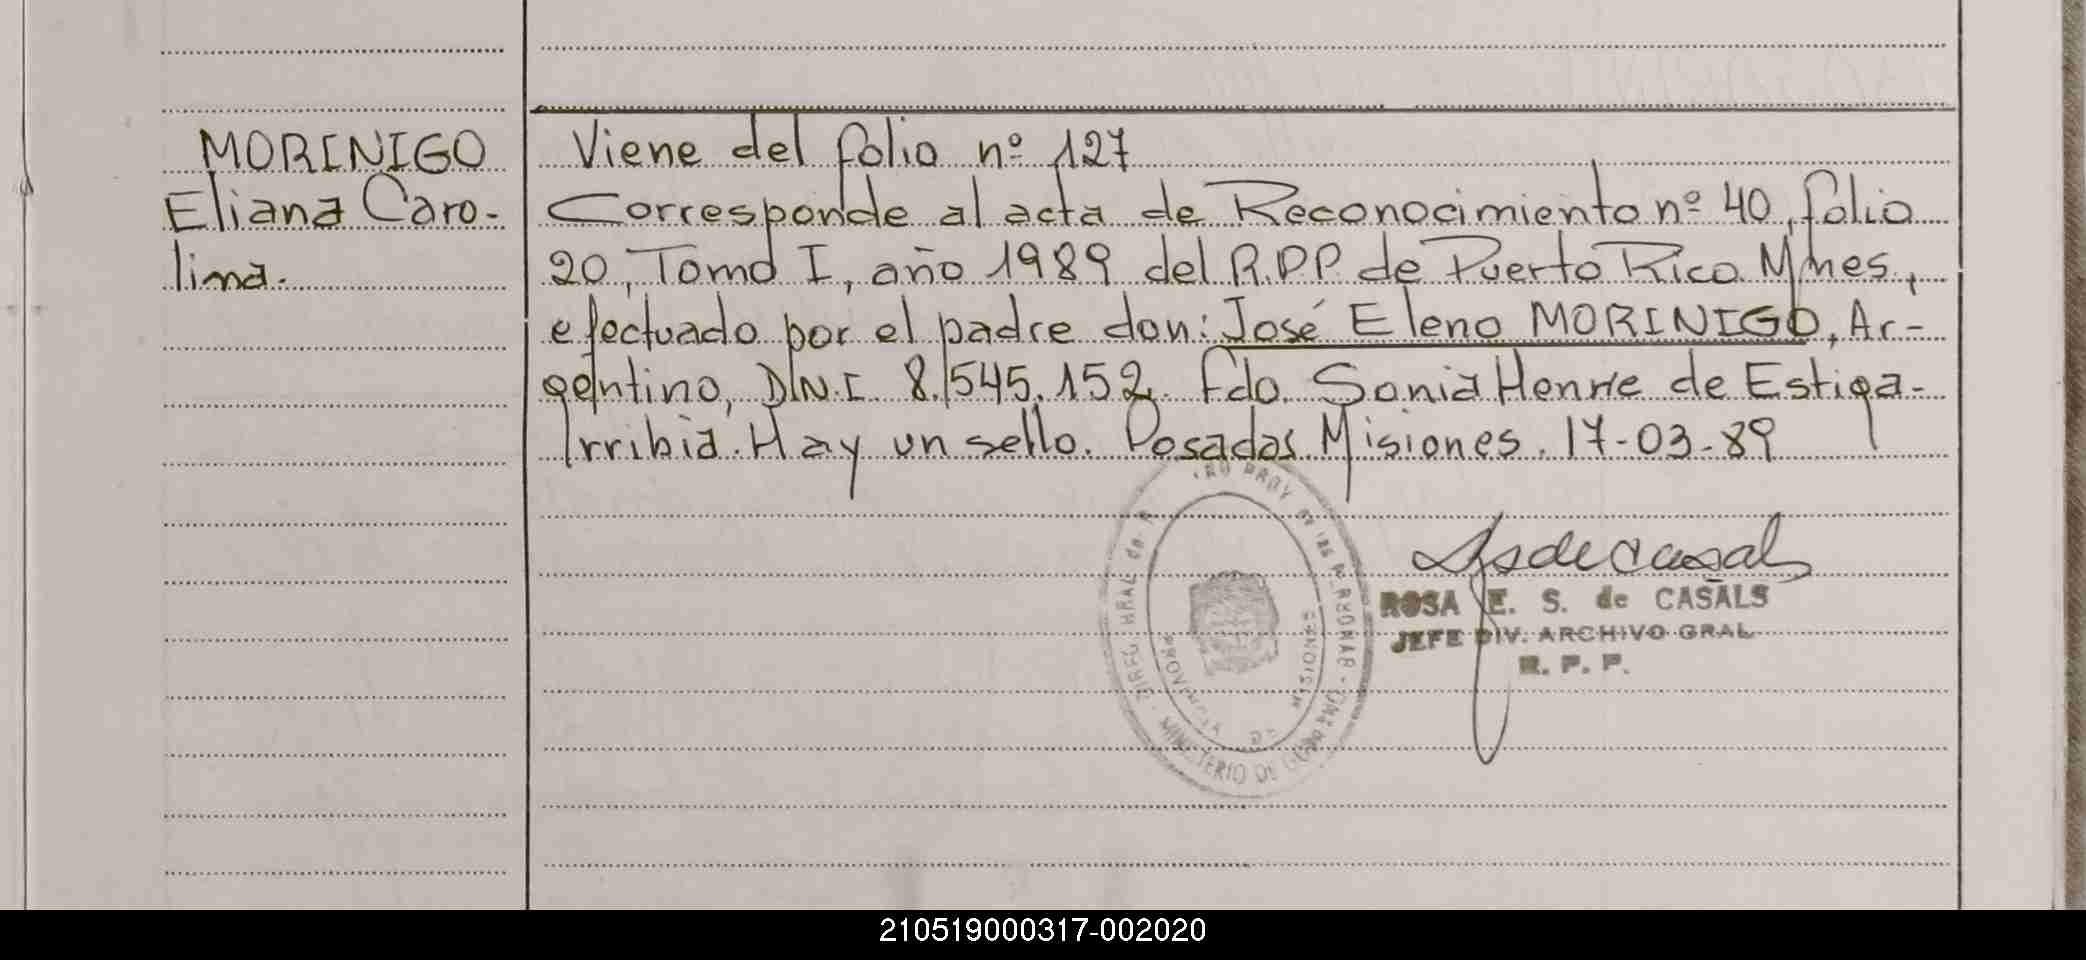 MORINIGO
Eliana Caro-
lina.
Viene del folio nº 127
Corresponde al acta de Reconocimiento nº 40, folio
20, Tomo I, año 1989 del R.P.P. de Puerto Rico Mnes,
efectuado por el padre don: José Eleno MORINIGO, Ar-
gentino, D.N.I. 8.545.152. Fdo. Sonia Henrie de Estiga-
rribia. Hay un sello. Posadas Misiones. 17-03-89
ROSA E. S. de CASALS
JEFE DIV. ARCHIVO GRAL
R. P. P.
MINISTERIO DE GOBIERNO
PROVINCIA DE MISIONES
210519000317-002020